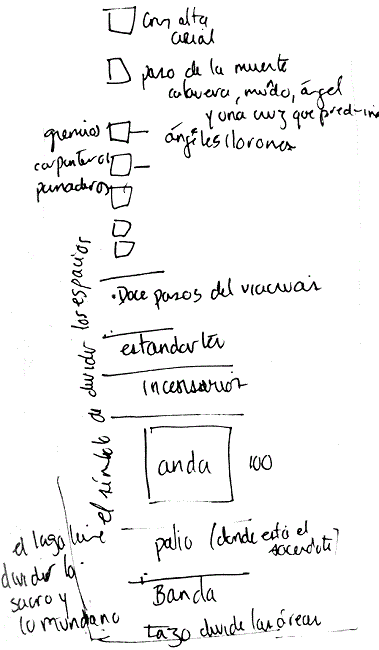 Con alta
paso de la muerte
calavera, mundo, ángel
y una cruz que
ángeles llorones
gremios
carpinteros
panaderos
• Doce pasos del viacrucis
estandartes
incensarios
anda 100
palio (donde está el
sacerdote)
Banda
lazo divide las áreas
el símbolo de dividir los espacios
el lazo
dividir lo
sacro y
lo mundano